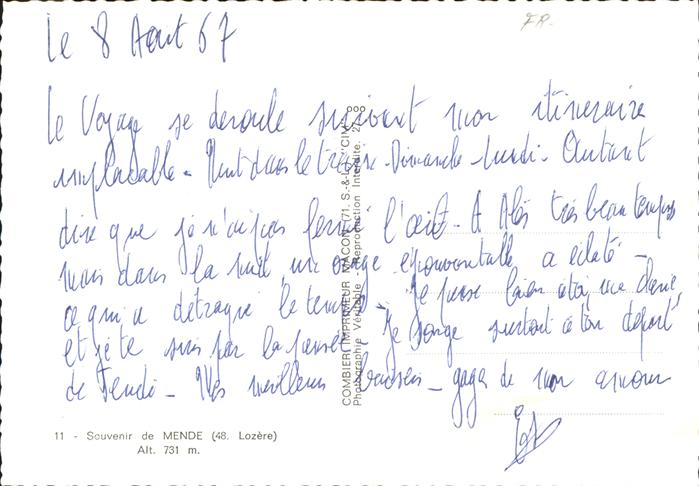 FR.
Le 8 Aout 67
Le Voyage se deroule suivant mon itineraire
implacable - Nuit dans le train - Dimanche - Lundi - Autant
dire que je n'ai pas fermé l'oeil - A Alès très beau temps
mais dans la nuit un orage épouvantable a éclaté -
ce qui a détraqué le temps - Je pense bien à toi, ma
et je te suis par la pensée - Je songe surtout à ton départ
de Jeudi - Mes meilleurs baisers - gage de mon amour
11 - Souvenir de MENDE (48. Lozère)
Alt. 731 m.
COMBIER IMPRIMEUR MACON (71. S.-&-L.) "CIM"
Photographie Véritable - Reproduction Interdite.